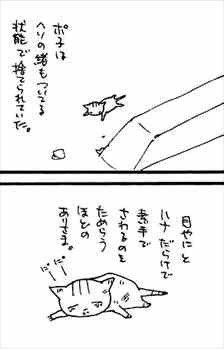 ポ子は
ヘソの緒もついてる
状態で捨てられていた。
目やにと
ハナだらけで
素手で
さわるのを
ためらう
ほどの
ありさま。
だー
だー